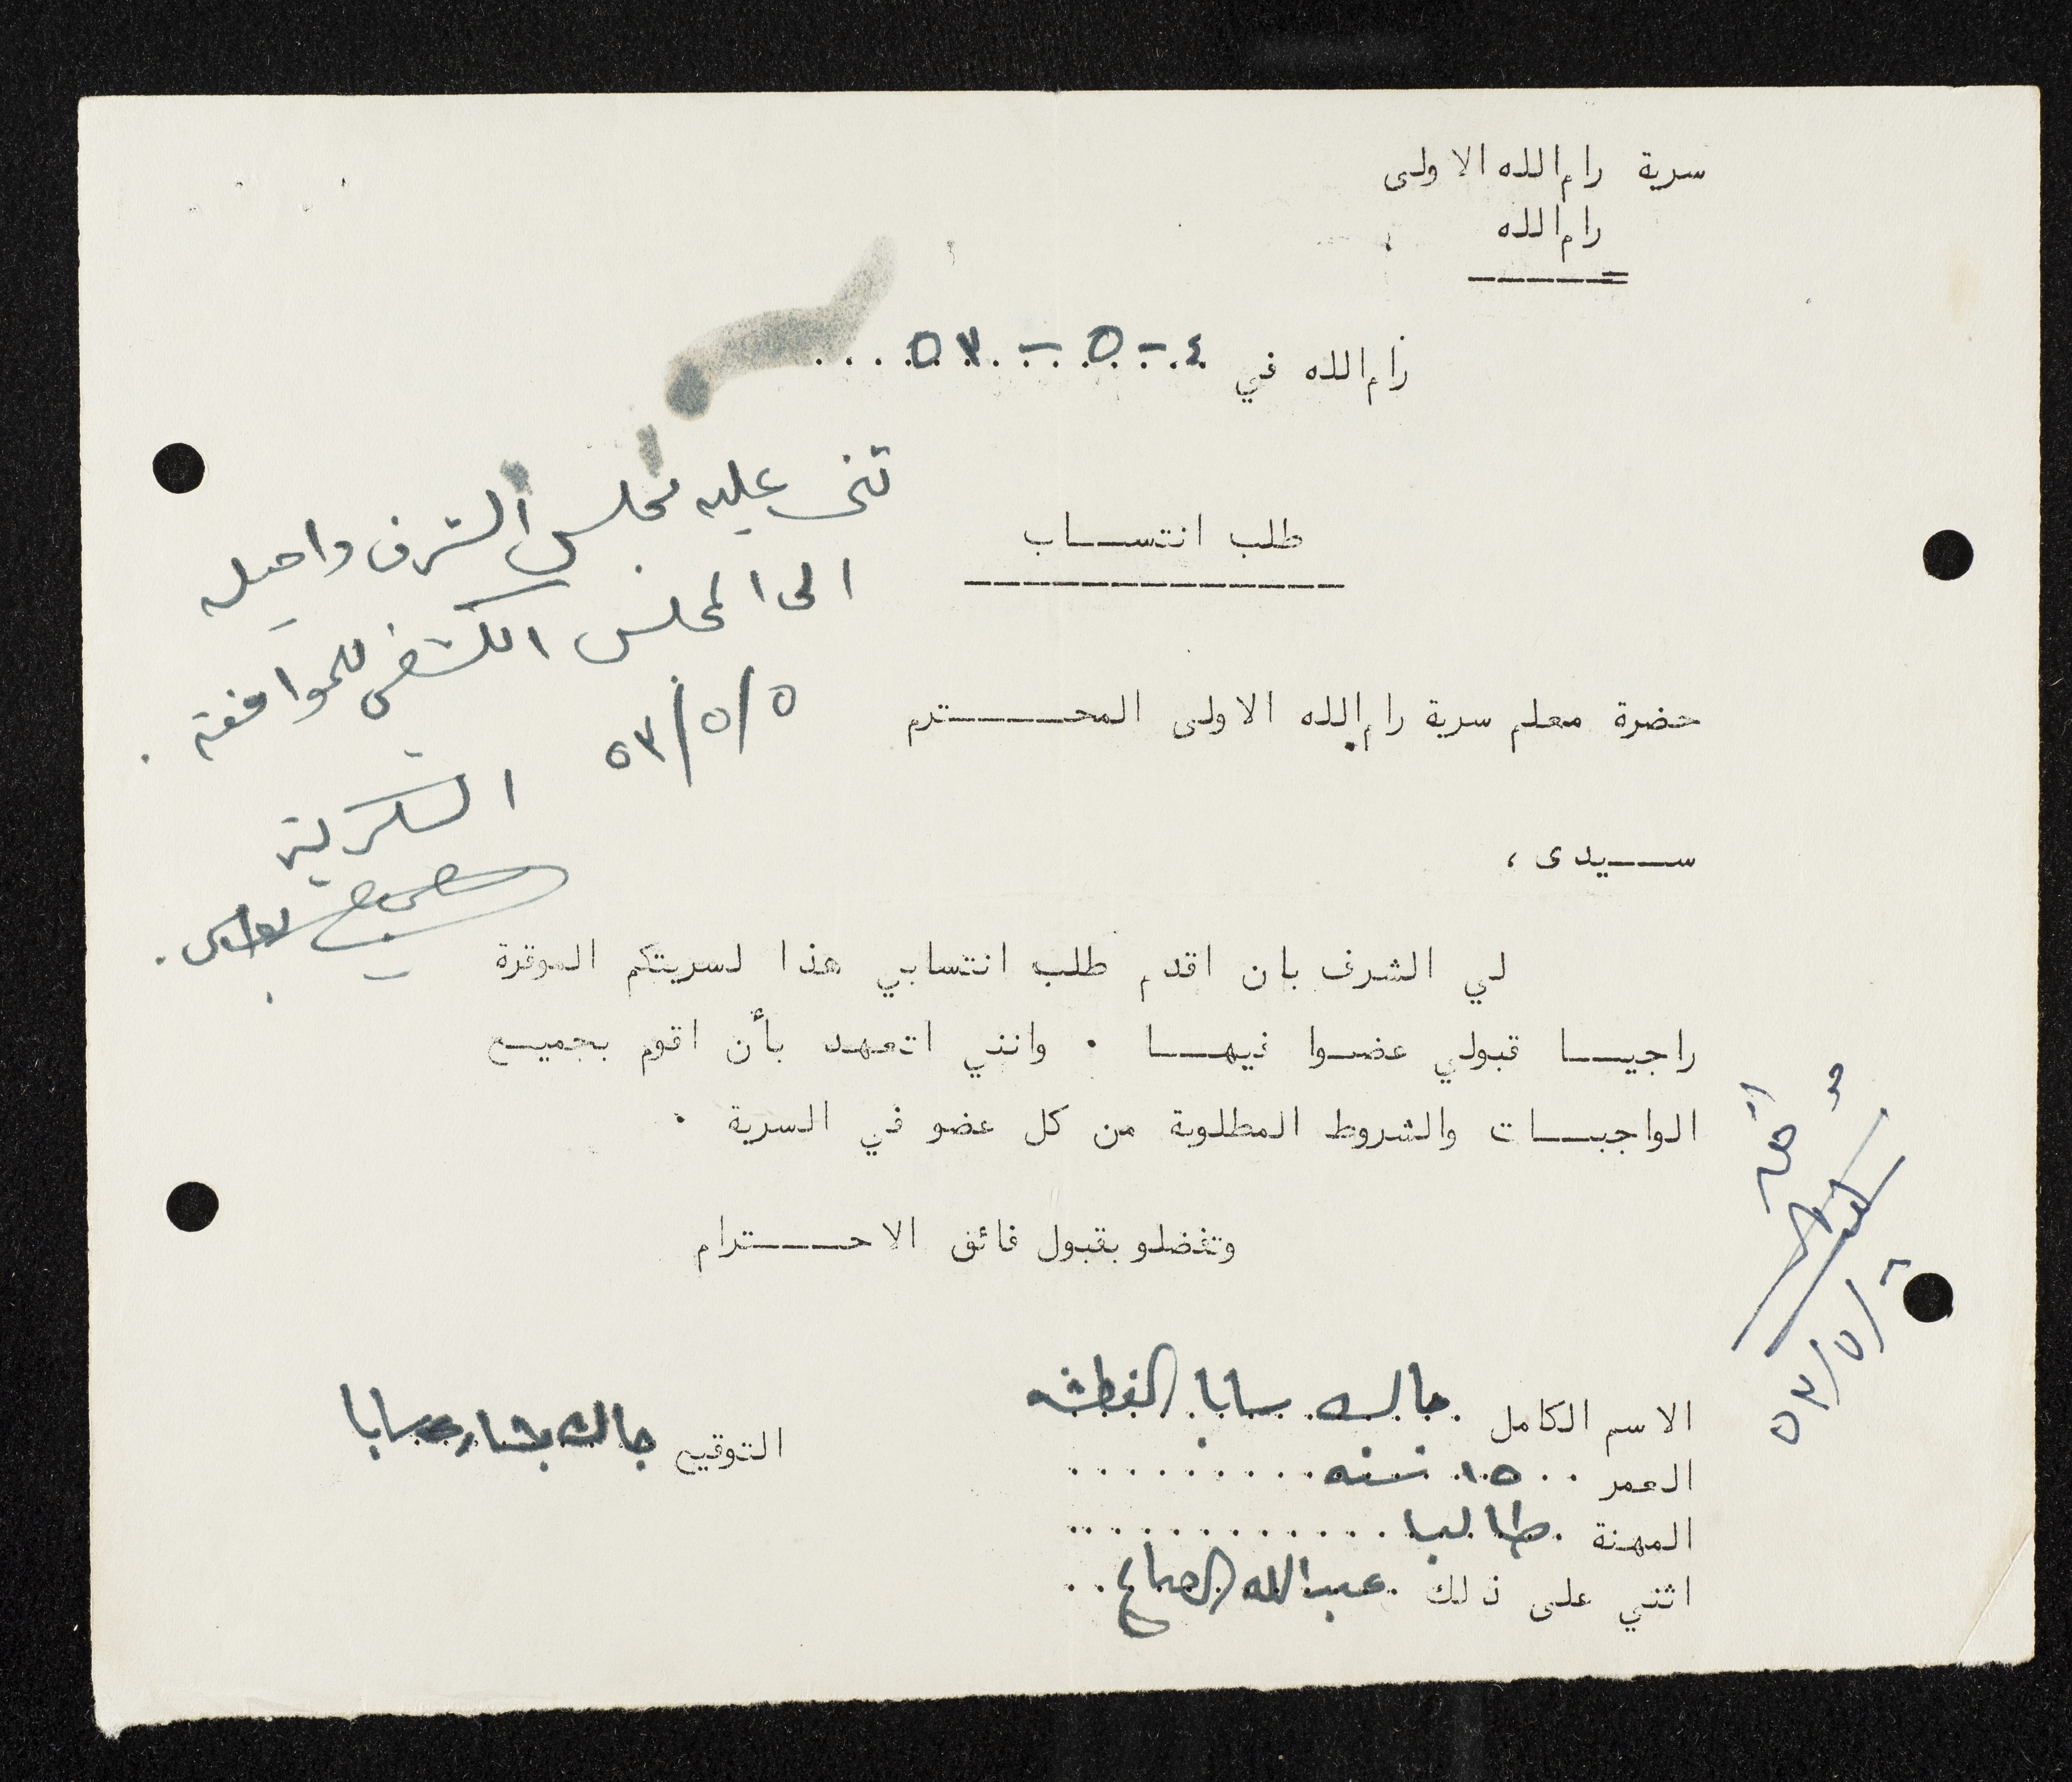 سرية رام الله الاولى
رام الله
رام الله في ٤ - ٥ - ٥٣
طلب انتساب
ثني عليه مجلس الشرف واحيل
الى المجلس الكشفي للموافقة .
٥/٥/٥٣
السكرتير
حضرة معلم سرية رام الله الاولى المحترم
سيدى ،
لي الشرف بان اقدم طلب انتسابي هذا لسريتكم الموقرة
راجيا قبولي عضوا فيها . وانني اتعهد بأن اقوم بجميع
الواجبات والشروط المطلوبة من كل عضو في السرية .
وتفضلو بقبول فائق الاحترام
٥٣/٥/
الاسم الكامل جاك سابا
التوقيع جاك بشاره سابا
العمر ١٥ سنه
المهنة طالب
اثني على ذلك عبدالله